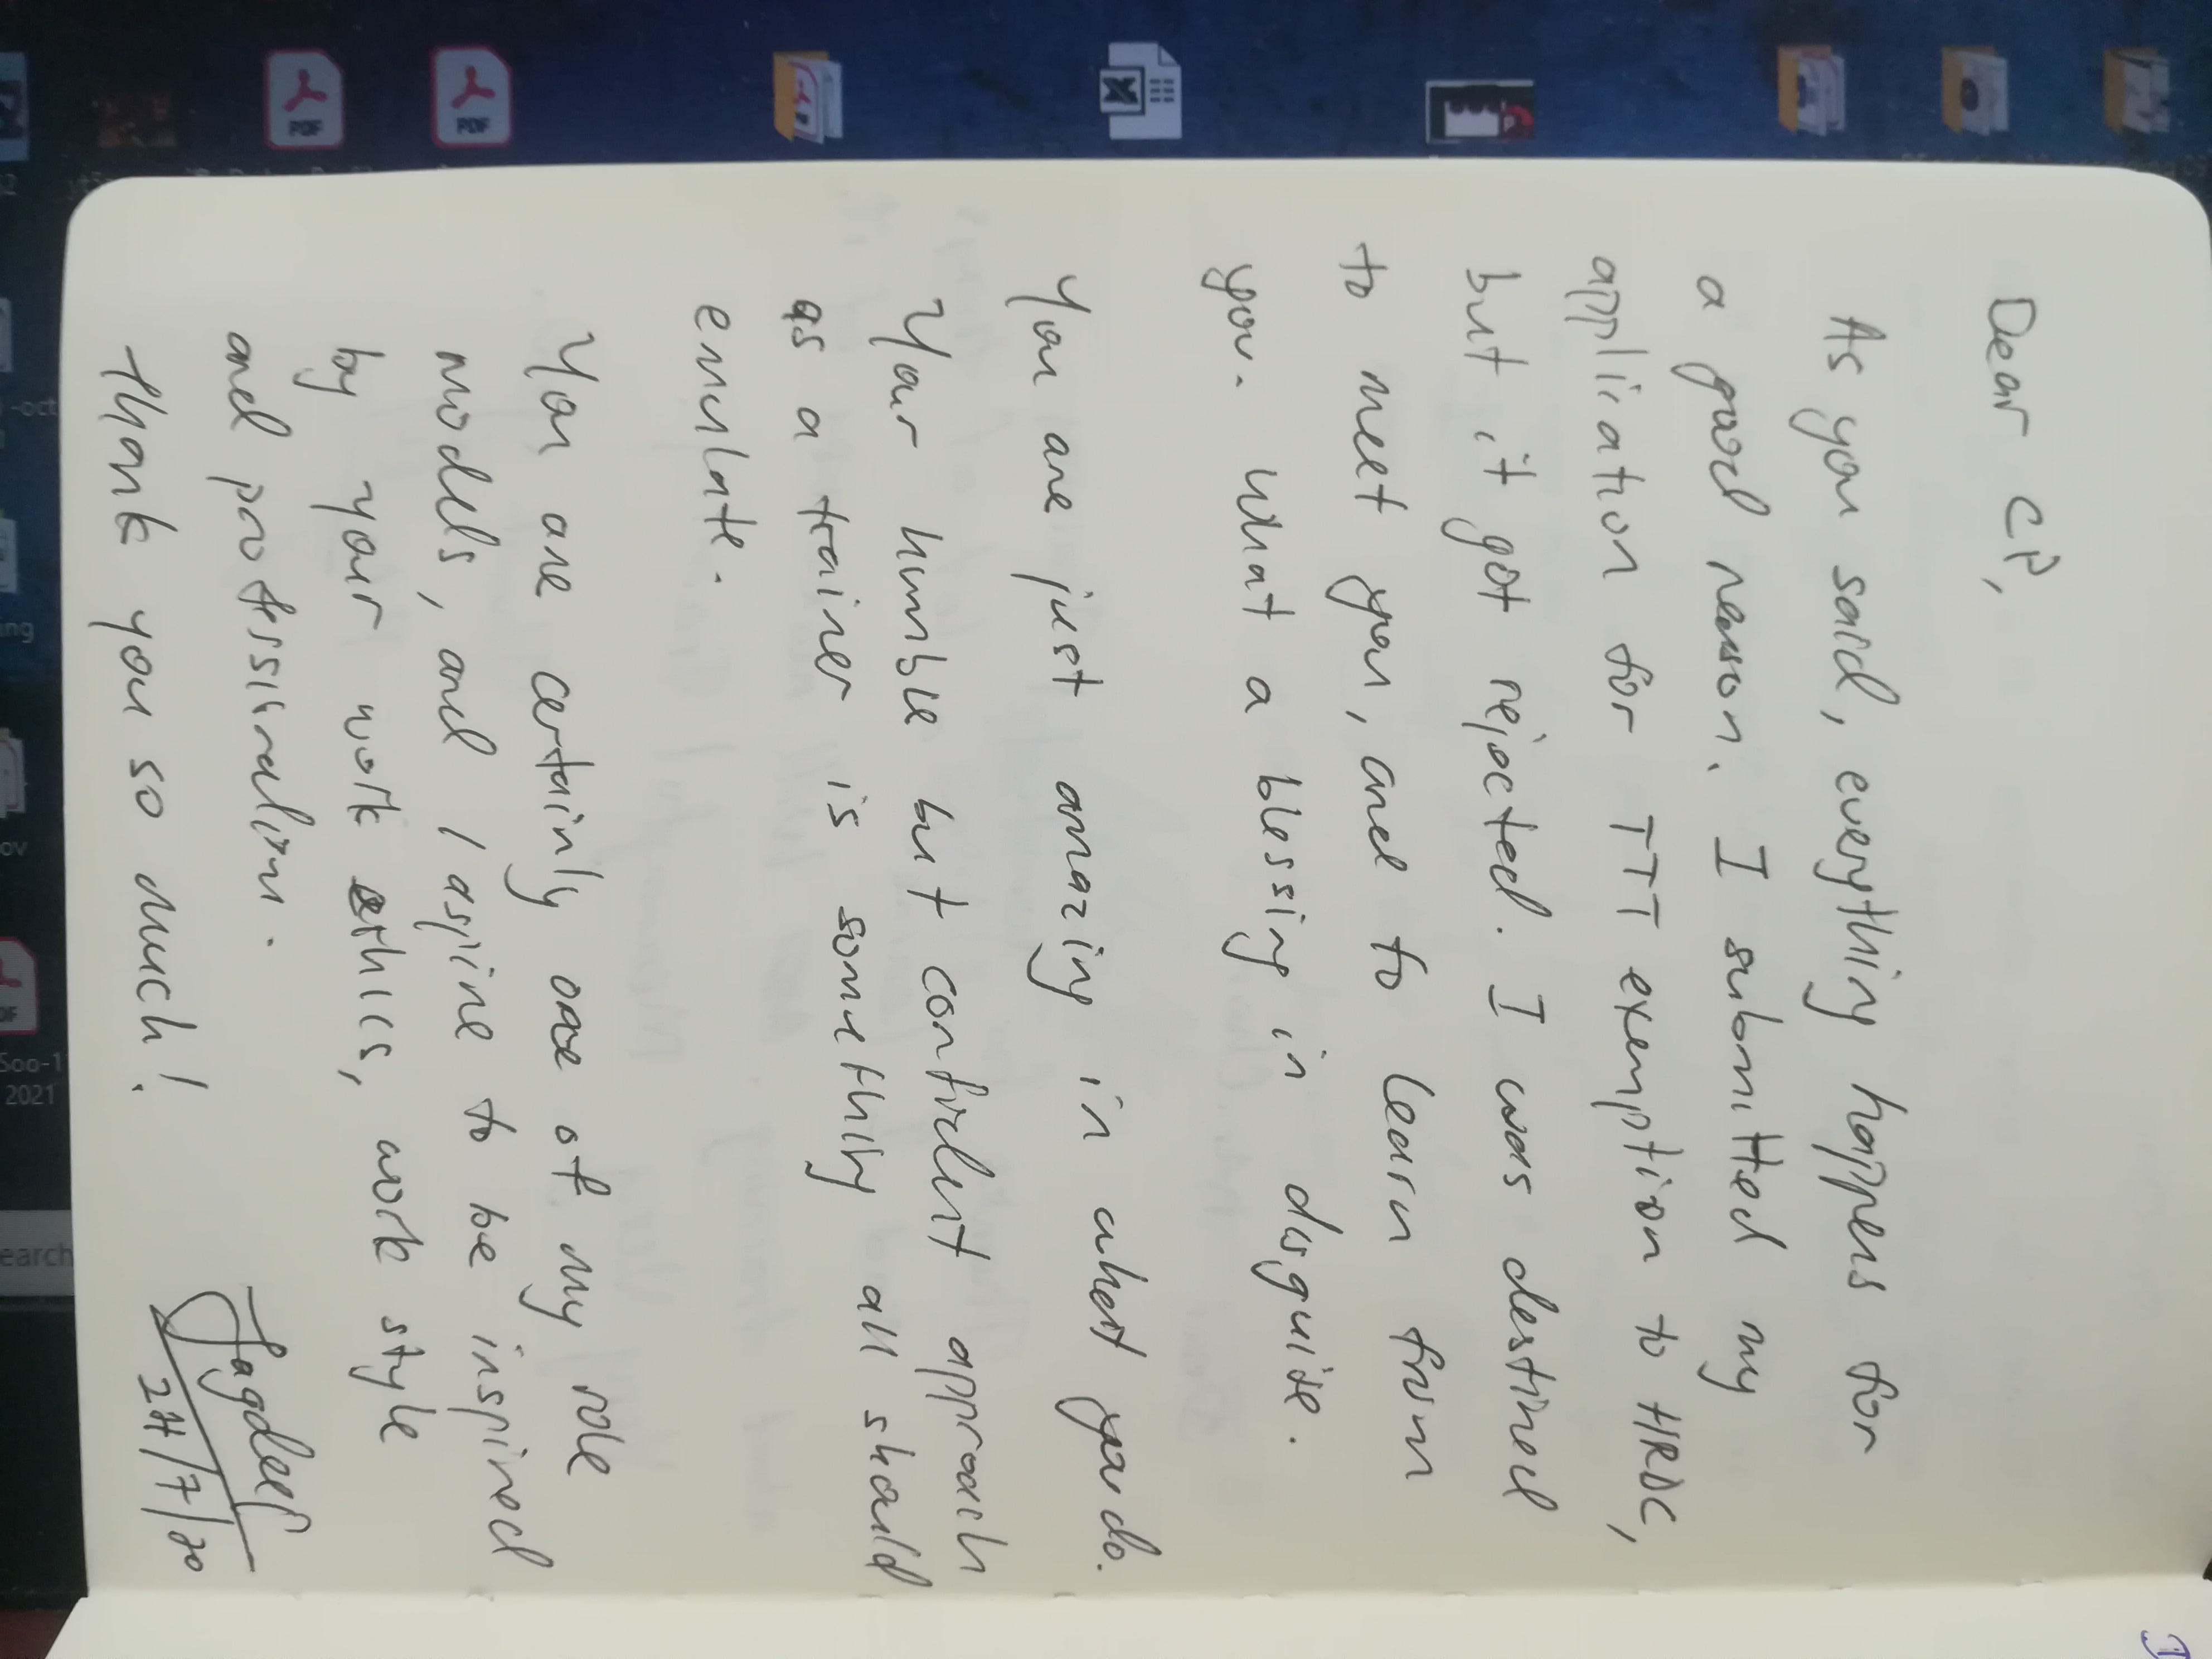 Dear CP,
As you said, everything happens for
a good reason. I submitted my
application for TTT exemption to HRDC,
but it got rejected. I was destined
to meet you, and to learn from
you. What a blessing in disguise.
You are just amazing in what you do.
Your humble but confident approach
as a trainer is something all should
emulate.
You are certainly one of my role
models, and I aspire to be inspired
by your work ethics, work style
and professionalism.
Thank you so much!
Jagdeep
27/7/20
PDF
PDF
-oct
ing
ov
Soo-1
2021
earch